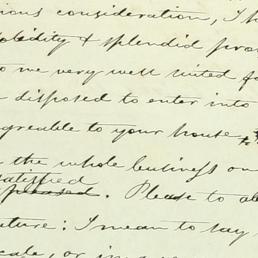 ious consideration, I h
obidity & splendid pro
to me very well suited fo
disposed to enter into
greeable to your house
the whole business on
satisfied
pleased. Please to al
ture: I mean to say
cale, or in